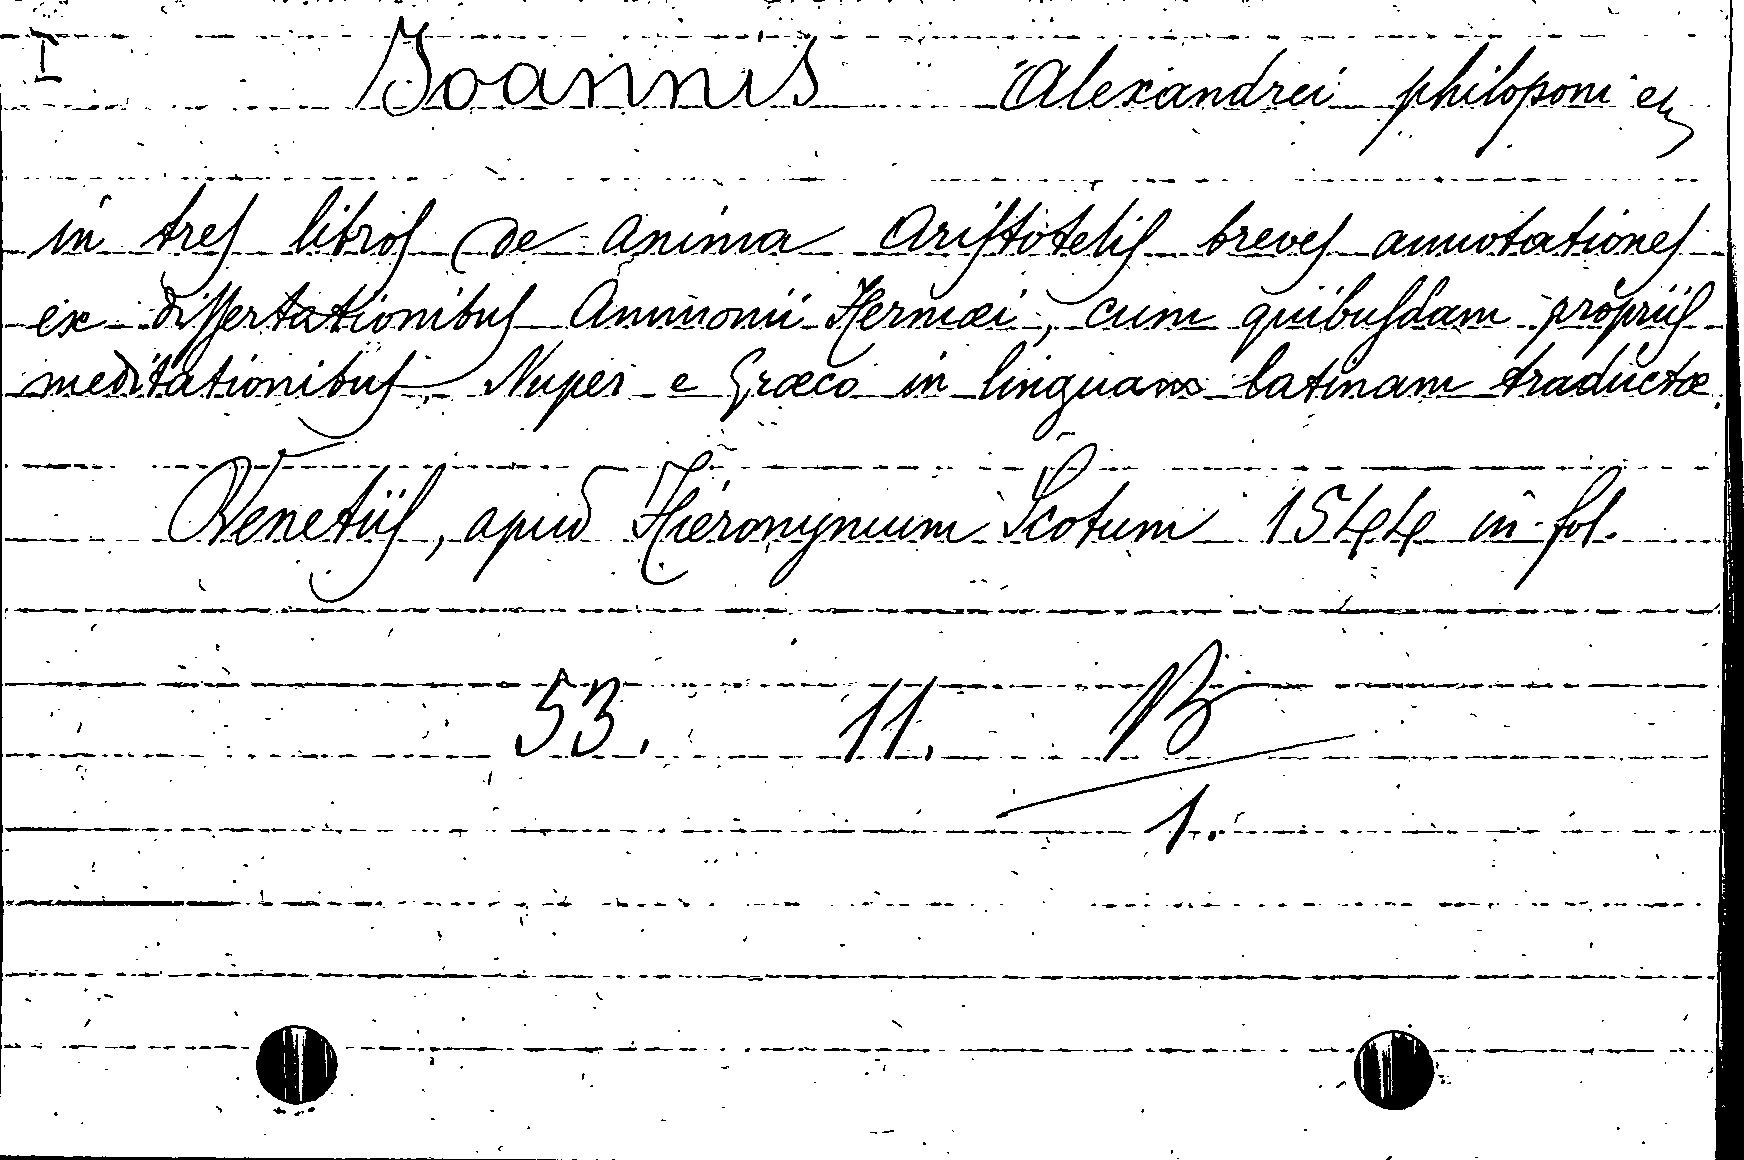 I Joannis Alexandrei philoponi
in tres libros de anima Aristotelis breves annotationes
ex dissertationibus Ammonii Hermæi, cum quibusdam propriis
meditationibus. Nuper e Græco in linguam latinam traductæ.
Venetiis, apud Hieronymum Scotum 1544 in fol.
53. 11. B
1.